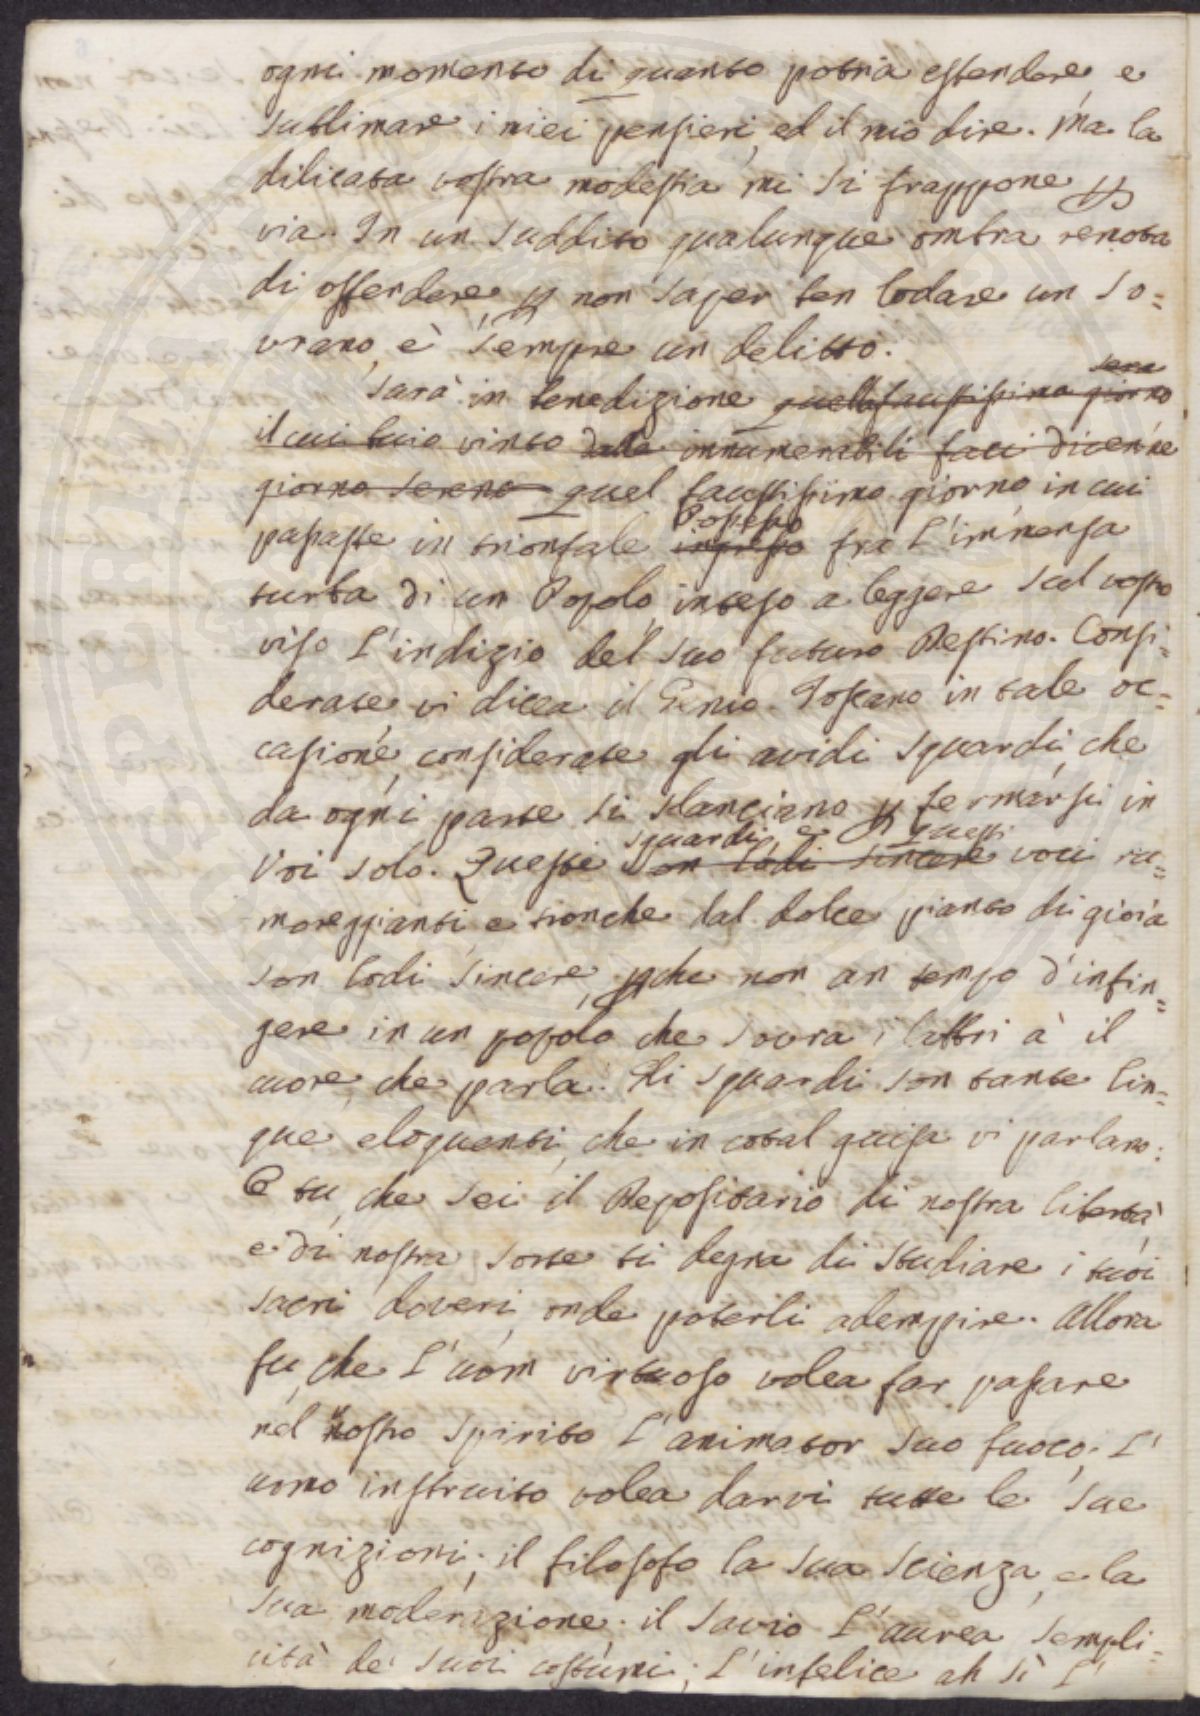 ogni momento di quanto potria estendere, e
sublimare i miei pensieri, ed il mio dire. Ma la
dilicata vostra modestia mi si frappone p
via. In un suddito qualunque ombra remota
di offendere, p non saper ben lodare un So=
vrano, è sempre un delitto.
Sarà in benedizione quello faustissimo giorno
sera
il cui buio vinto dalle innumerabili faci divenne
giorno sereno quel faustissimo giorno in cui
Possesso
passaste in trionfale ingresso fra l'immensa
turba di un Popolo, inteso a leggere sul vostro
viso l'indizio del suo futuro Destino. Consi=
derate, vi dicea il Genio Toscano in tale oc=
casione, considerate gli avidi sguardi, che
da ogni parte si slanciano p fermarsi in
Voi solo. Questi son lodi sincere voci ru=
sguardi, e questi
moreggianti, e tronche dal dolce pianto di gioia
son lodi sincere, pche non an tempo d'infin=
gere in un popolo che sovra i labbri à il
cuore, che parla. Gli sguardi son tante lin=
gue eloquenti, che in cotal guisa vi parlano:
E tu, che sei il Depositario di nostra libertà
e di nostra sorte ti degna di studiare i tuoi
sacri doveri, onde poterli adempire. Allora
fu, che l'uom virtuoso volea far passare
nel vostro Spirito l'animator suo fuoco; l'
uomo instruito volea darvi tutte le sue
cognizioni; il filosofo la sua Scienza, e la
sua moderazione; il Savio l'aurea sempli=
cità de' suoi costumi; l'infelice ah sì l'